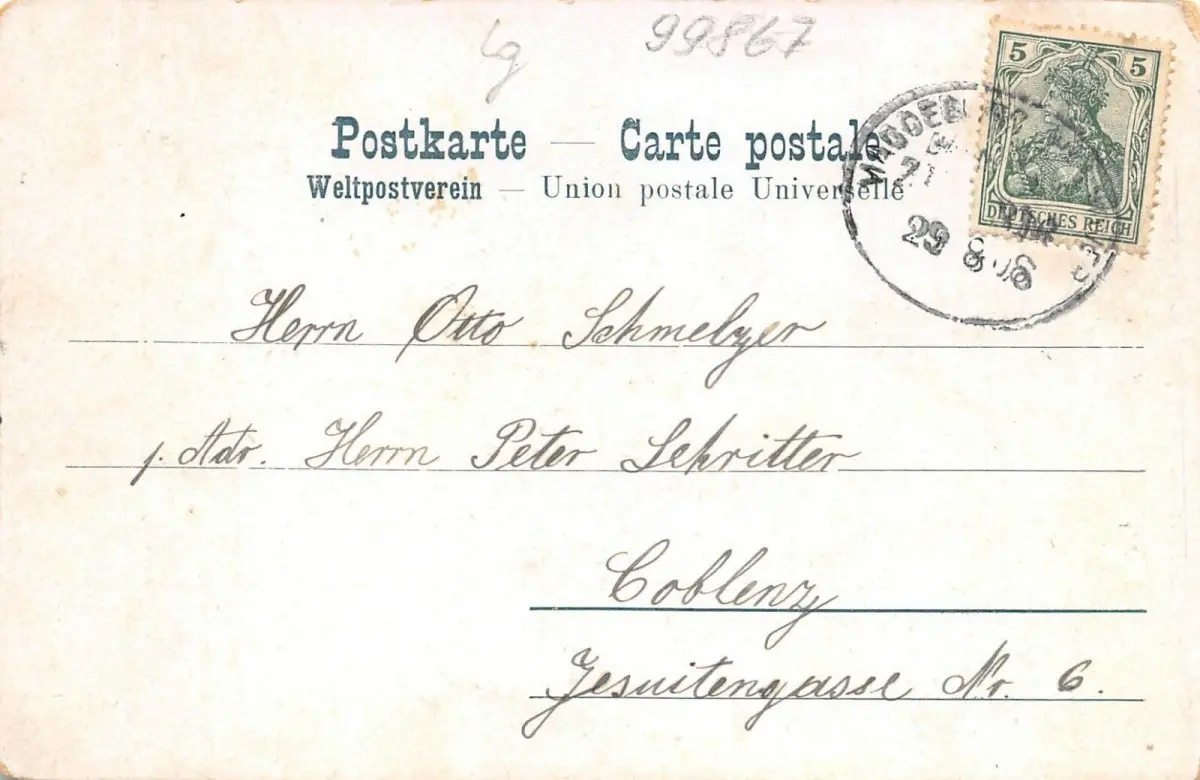 lg 99867
Postkarte — Carte postale
Weltpostverein — Union postale Universelle
5 5
DEUTSCHES REICH
29 8
Herrn Otto Schmelzer
p. Adr. Herrn Peter Schritter
Coblenz
Jesuitengasse Nr. 6.